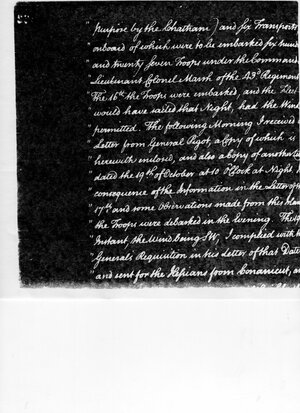 " purpose by the Chatham) and Six Transports
" onboard of which were to be embarked six hund
" and twenty Seven Troops under the Command
" Lieutenant Colonel Marsh of the 43d Regiment
" The 16th the Troops were embarked, and the Fleet
" would have sailed that Night, had the Wind
" permitted. The following Morning I received a
" Letter from General Pigot, a Copy of which is
" herewith enclosed, and also a Copy of another
" dated the 19th of October at 10 o'Clock at Night,
" consequence of the Information in the Letter of
" 17th and some Observations made from this
" the Troops were debarked in the Evening. The
" Instant, the Wind being SW, I complied with
" Generals Requisition in his Letter of that Date
" and sent for the Hessians from Conanicut, an